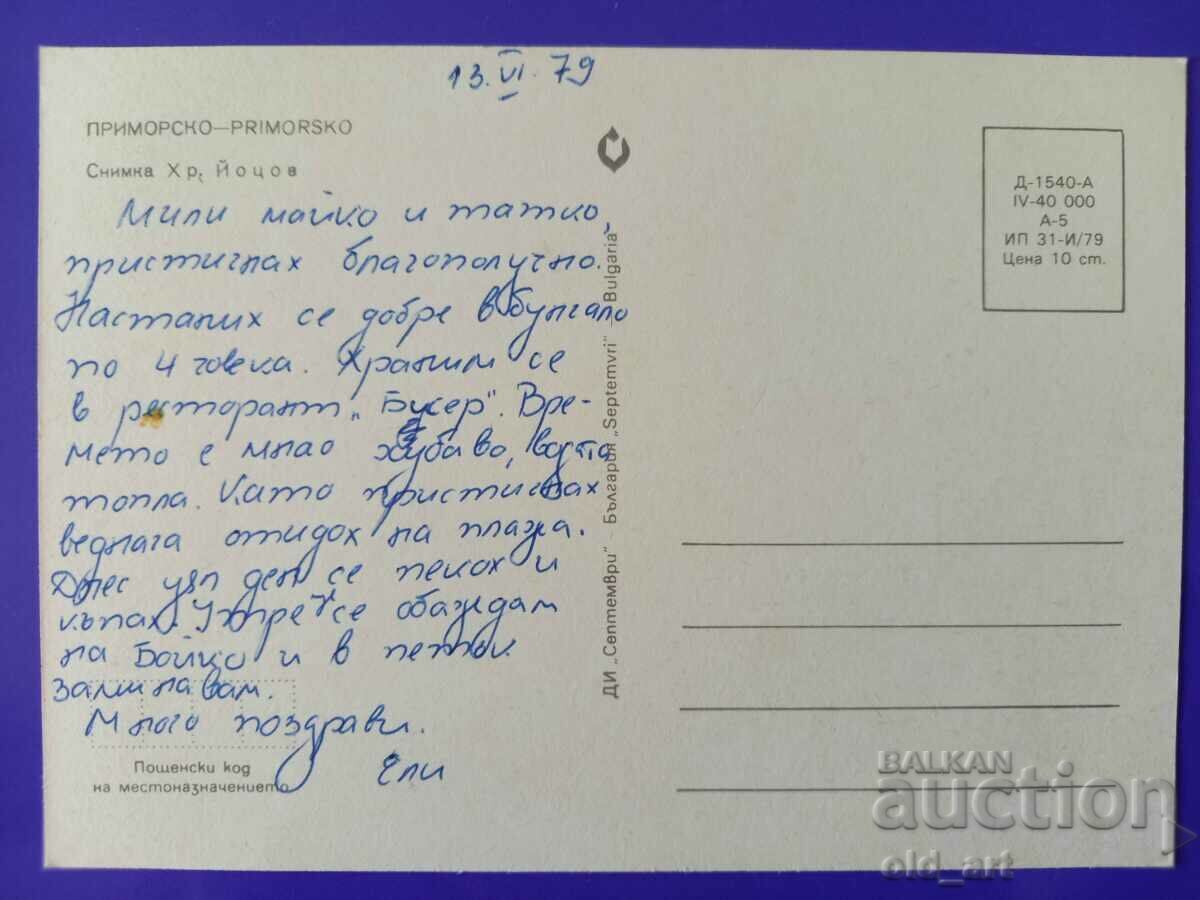 13.VI.79
ПРИМОРСКО—PRIMORSKO
Снимка Хр. Йоцов
Мили майко и татко,
пристигнах благополучно.
Настаних се добре в бунгало
по 4 човека. Храним се
в ресторант „Бисер". Вре-
мето е много хубаво, водата
топла. Като пристигнах
веднага отидох на плажа.
Днес цял ден се пекох и
къпах. Утре се обаждам
на Бойко и в петък
заминавам.
Много поздрави.
Ели
Пощенски код
на местоназначението
ДИ „Септември" – България „Septemvri" – Bulgaria
Д-1540-А
IV-40 000
А-5
ИП 31-И/79
Цена 10 ст.
BALKAN
auction
old_art